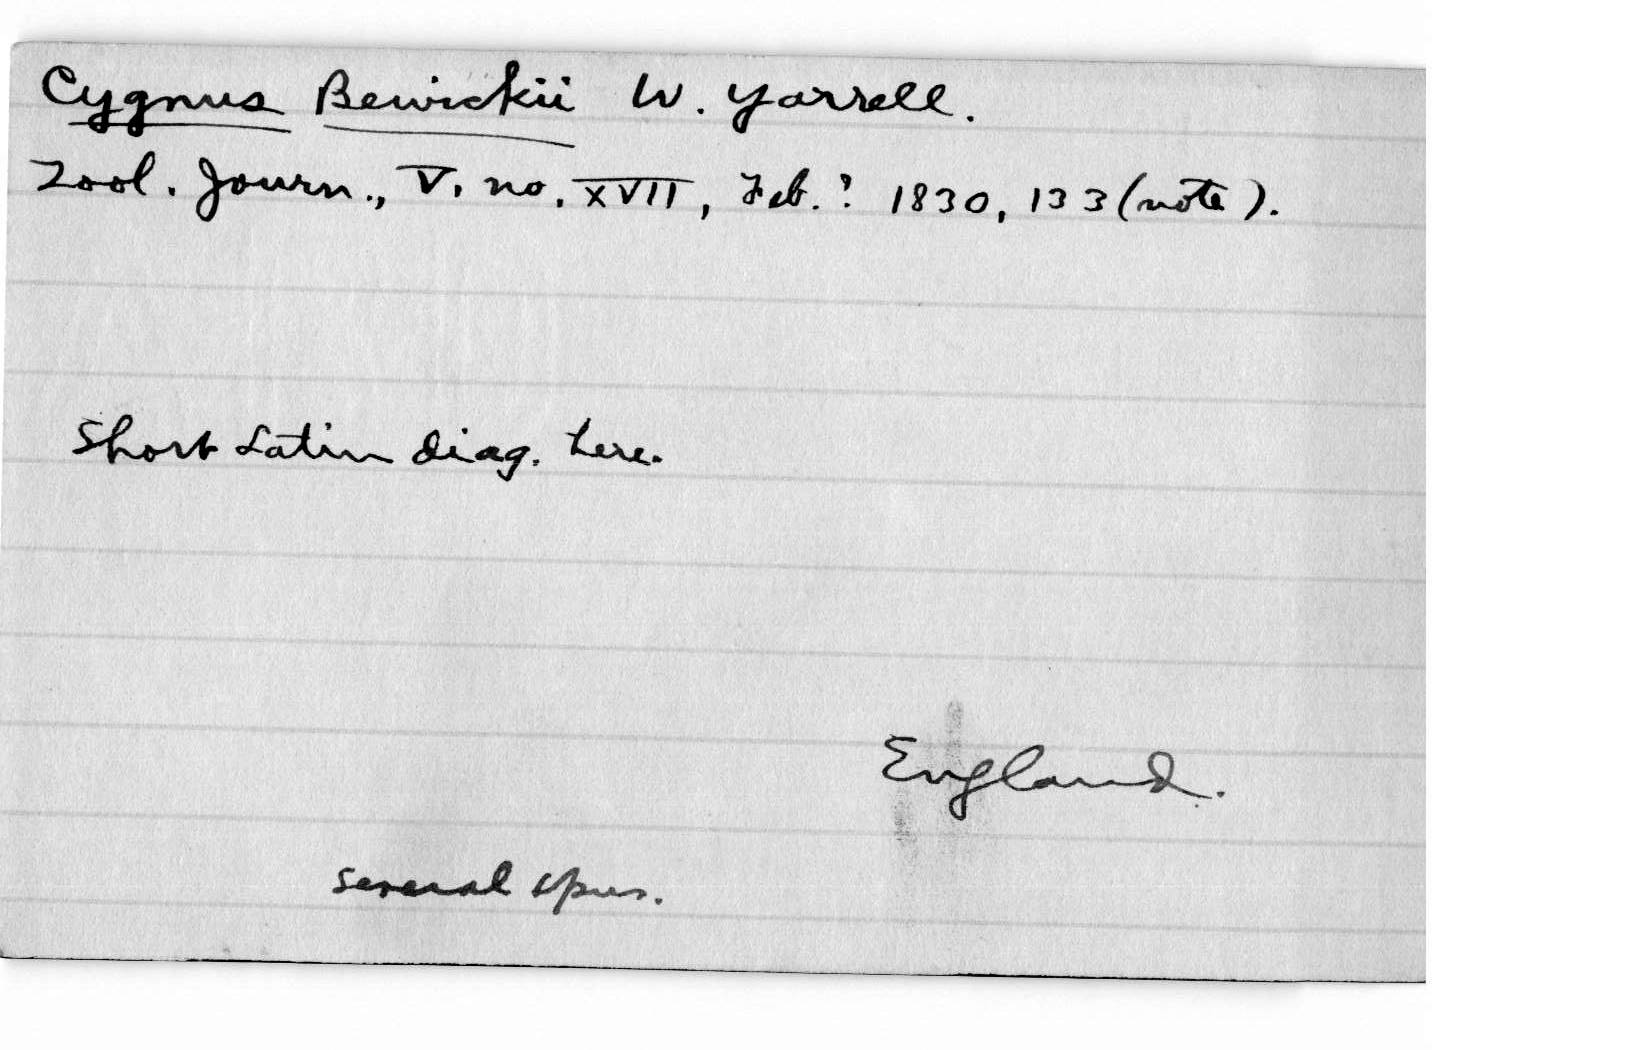 Cygnus Bewickii W. Yarrell.
Zool. Journ., V, no. XVII, Feb.? 1830, 133 (note).
Short Latin diag. here.
England.
several spms.